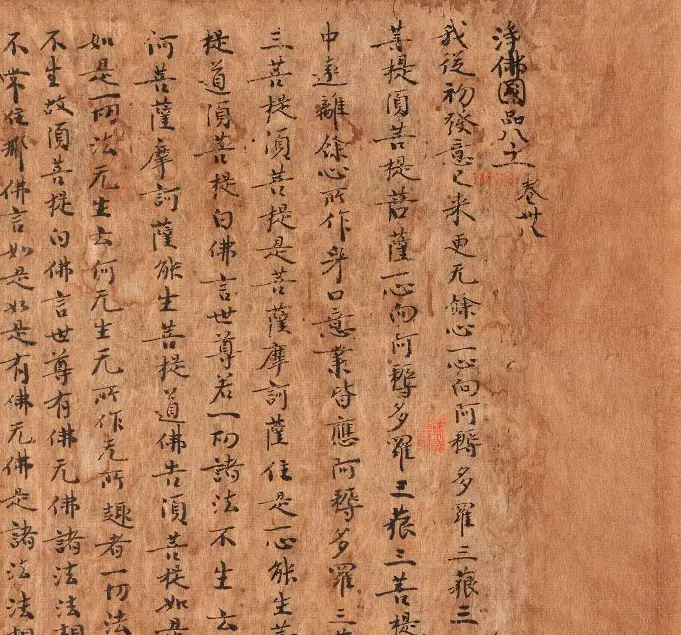 淨佛國品八十二 卷卅八
我從初發意已来更无餘心一心向阿耨多羅三藐三
菩提須菩提菩薩一心向阿耨多羅三藐三菩提
中遠離餘心所作身口意業皆應阿耨多羅三藐
三菩提須菩提是菩薩摩訶薩住是一心能生菩
提道須菩提白佛言世尊若一切諸法不生云
何菩薩摩訶薩能生菩提道佛告須菩提如是
如是一切法无生云何无生无所作无所趣者一切法
不生故須菩提白佛言世尊有佛无佛諸法法相
不常住耶佛言如是如是有佛无佛是諸法法相